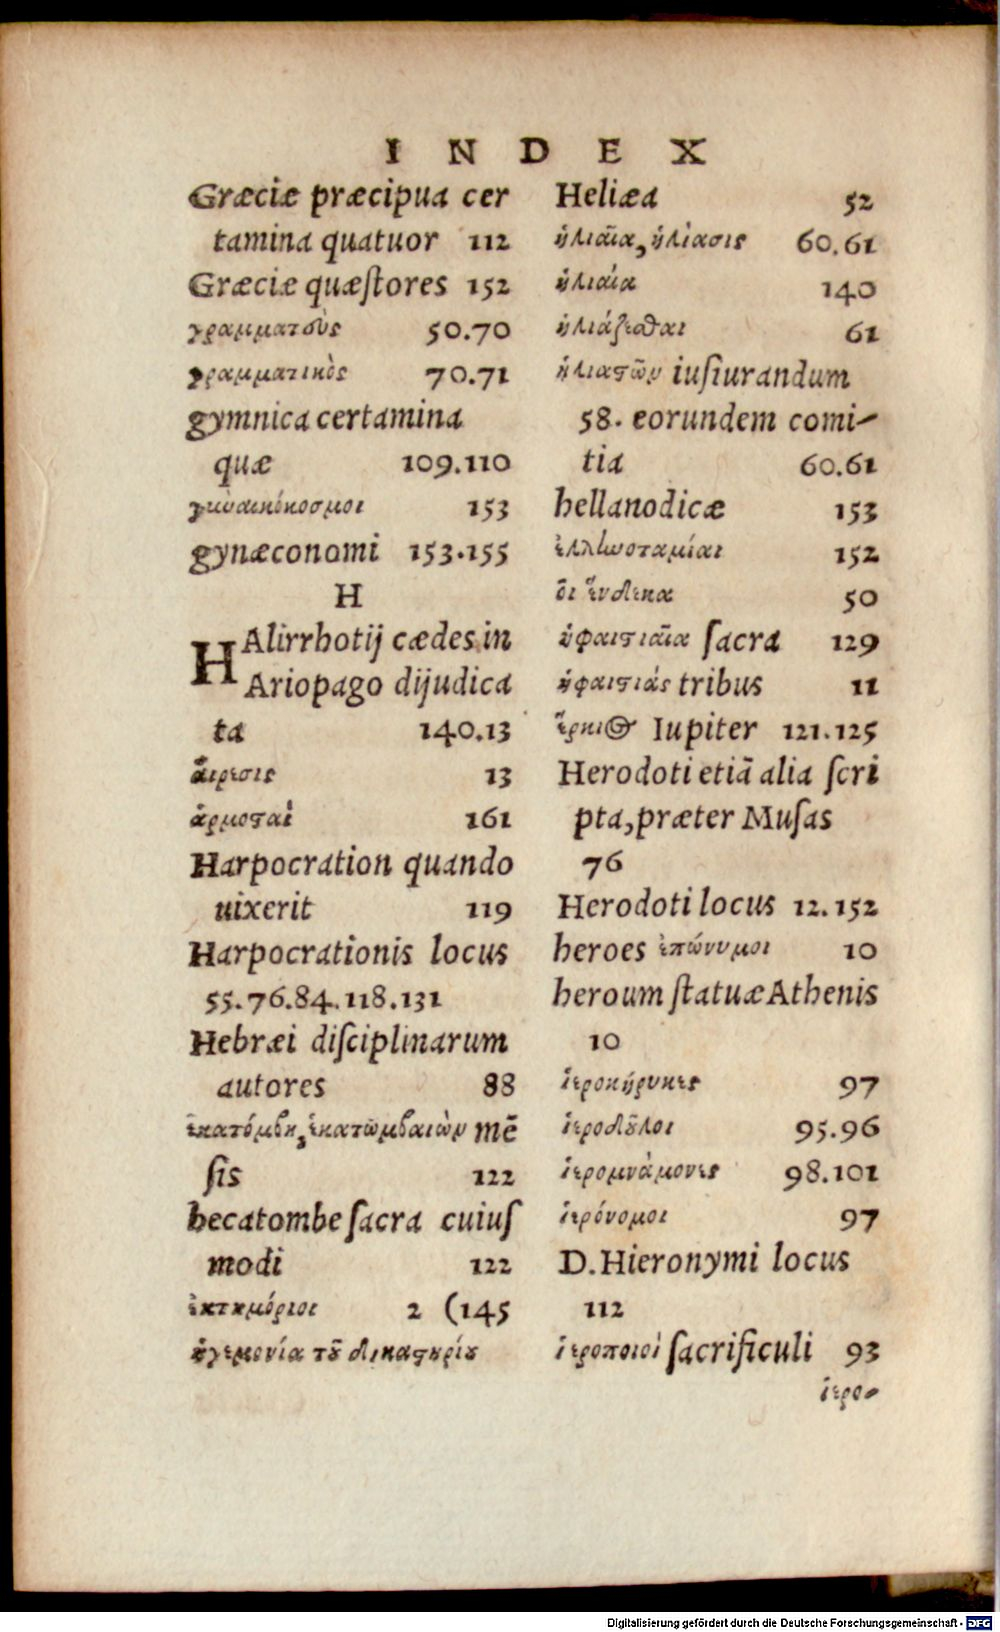 INDEX
Græciæ præcipua cer
tamina quatuor 112
Græciæ quæſtores 152
γραμματεὺς 50.70
γραμματικὸς 70.71
gymnica certamina
quæ 109.110
γυναικόκοσμοι 153
gynæconomi 153.155
H
HAlirrhotij cædes in
Ariopago dijudica
ta 140.13
αἵρεσις 13
ἁρμοσταὶ 161
Harpocration quando
uixerit 119
Harpocrationis locus
55.76.84.118.131
Hebræi diſciplinarum
autores 88
ἑκατόμβη, ἑκατομβαιὼν mē
ſis 122
hecatombe ſacra cuiuſ
modi 122
ἑκτημόριοι 2 (145
ἡγεμονία τȣ͂ δικαστηρίȣ
Heliæa 52
ἡλιαῖα, ἡλίασις 60.61
ἡλιαία 140
ἡλιάζεσθαι 61
ἡλιαστῶν iuſiurandum
58. eorundem comi-
tia 60.61
hellanodicæ 153
ἑλληνοταμίαι 152
οἱ ἕνδεκα 50
ἡφαιστιαῖα ſacra 129
ἡφαιστιάς tribus 11
ἕρκιος Iupiter 121.125
Herodoti etiā alia ſcri
pta, præter Muſas
76
Herodoti locus 12.152
heroes ἐπώνυμοι 10
heroum ſtatuæ Athenis
10
ἱεροκήρυκες 97
ἱεροδȣ͂λοι 95.96
ἱερομνάμονες 98.101
ἱερόνομοι 97
D. Hieronymi locus
112
ἱεροποιοὶ ſacrificuli 93
ἱερο-
Digitalisierung gefördert durch die Deutsche Forschungsgemeinschaft - DFG